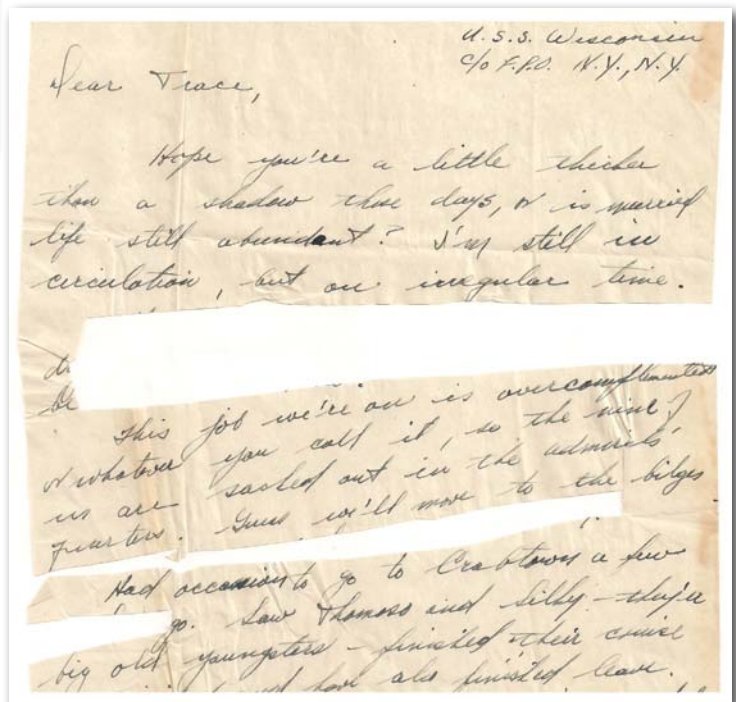 U.S.S. Wisconsin
c/o F.P.O. N.Y., N.Y.
Dear Trace,
Hope you're a little thicker
than a shadow these days, or is married
life still abundant? I'm still in
circulation, but on irregular time.
This job we're on is overcomplemented
or whatever you call it, so the nine of
us are sacked out in the admirals'
quarters. Guess we'll move to the bilges
Had occasion to go to Crabtown a few
go. Saw Thomoso and Libby - they're
big old youngsters - finished their cruise
and have also finished leave.